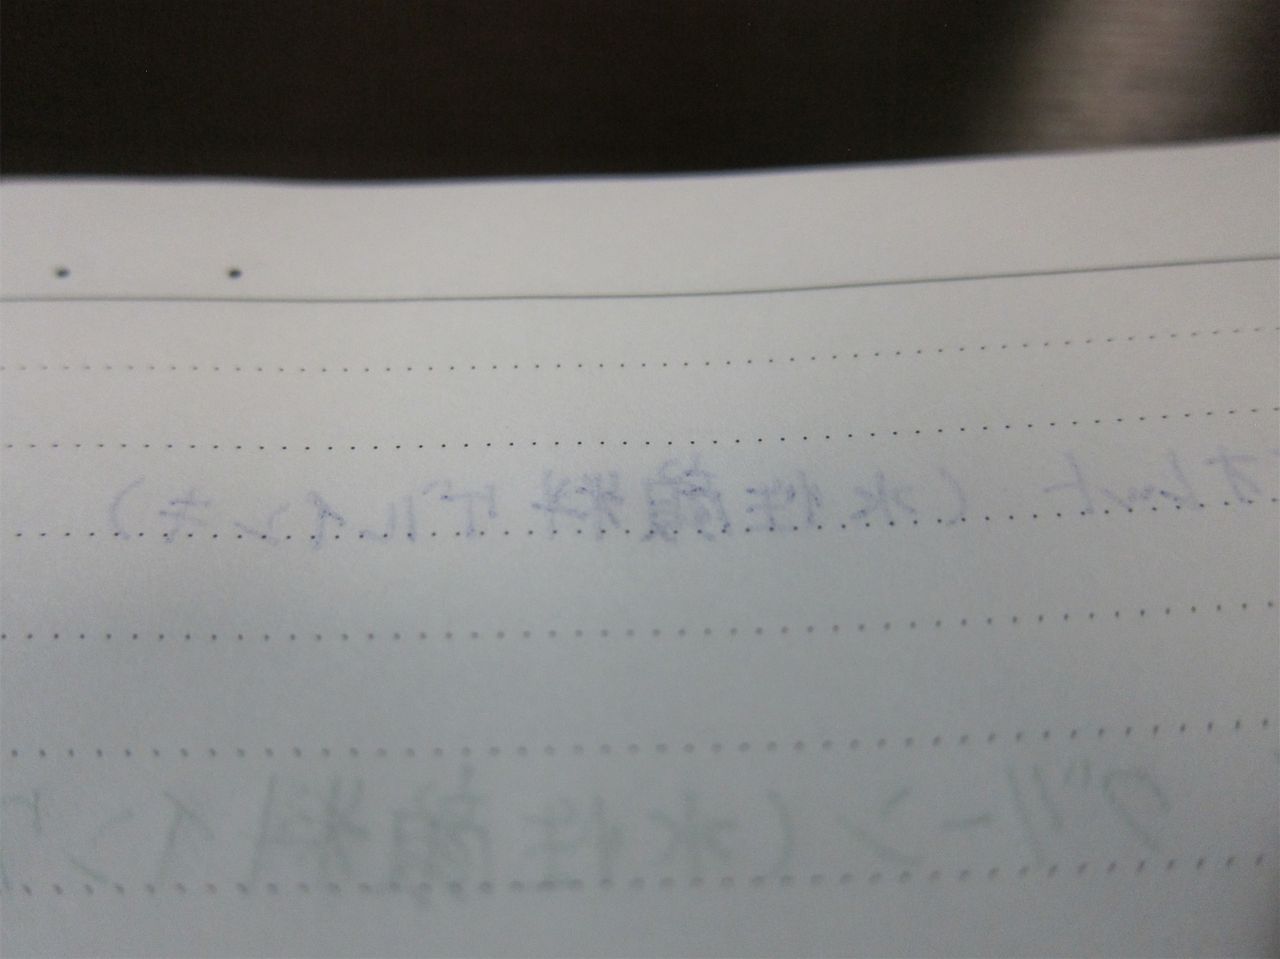 オレット（水性顔料ゲルインキ）
グリーン（水性顔料インク